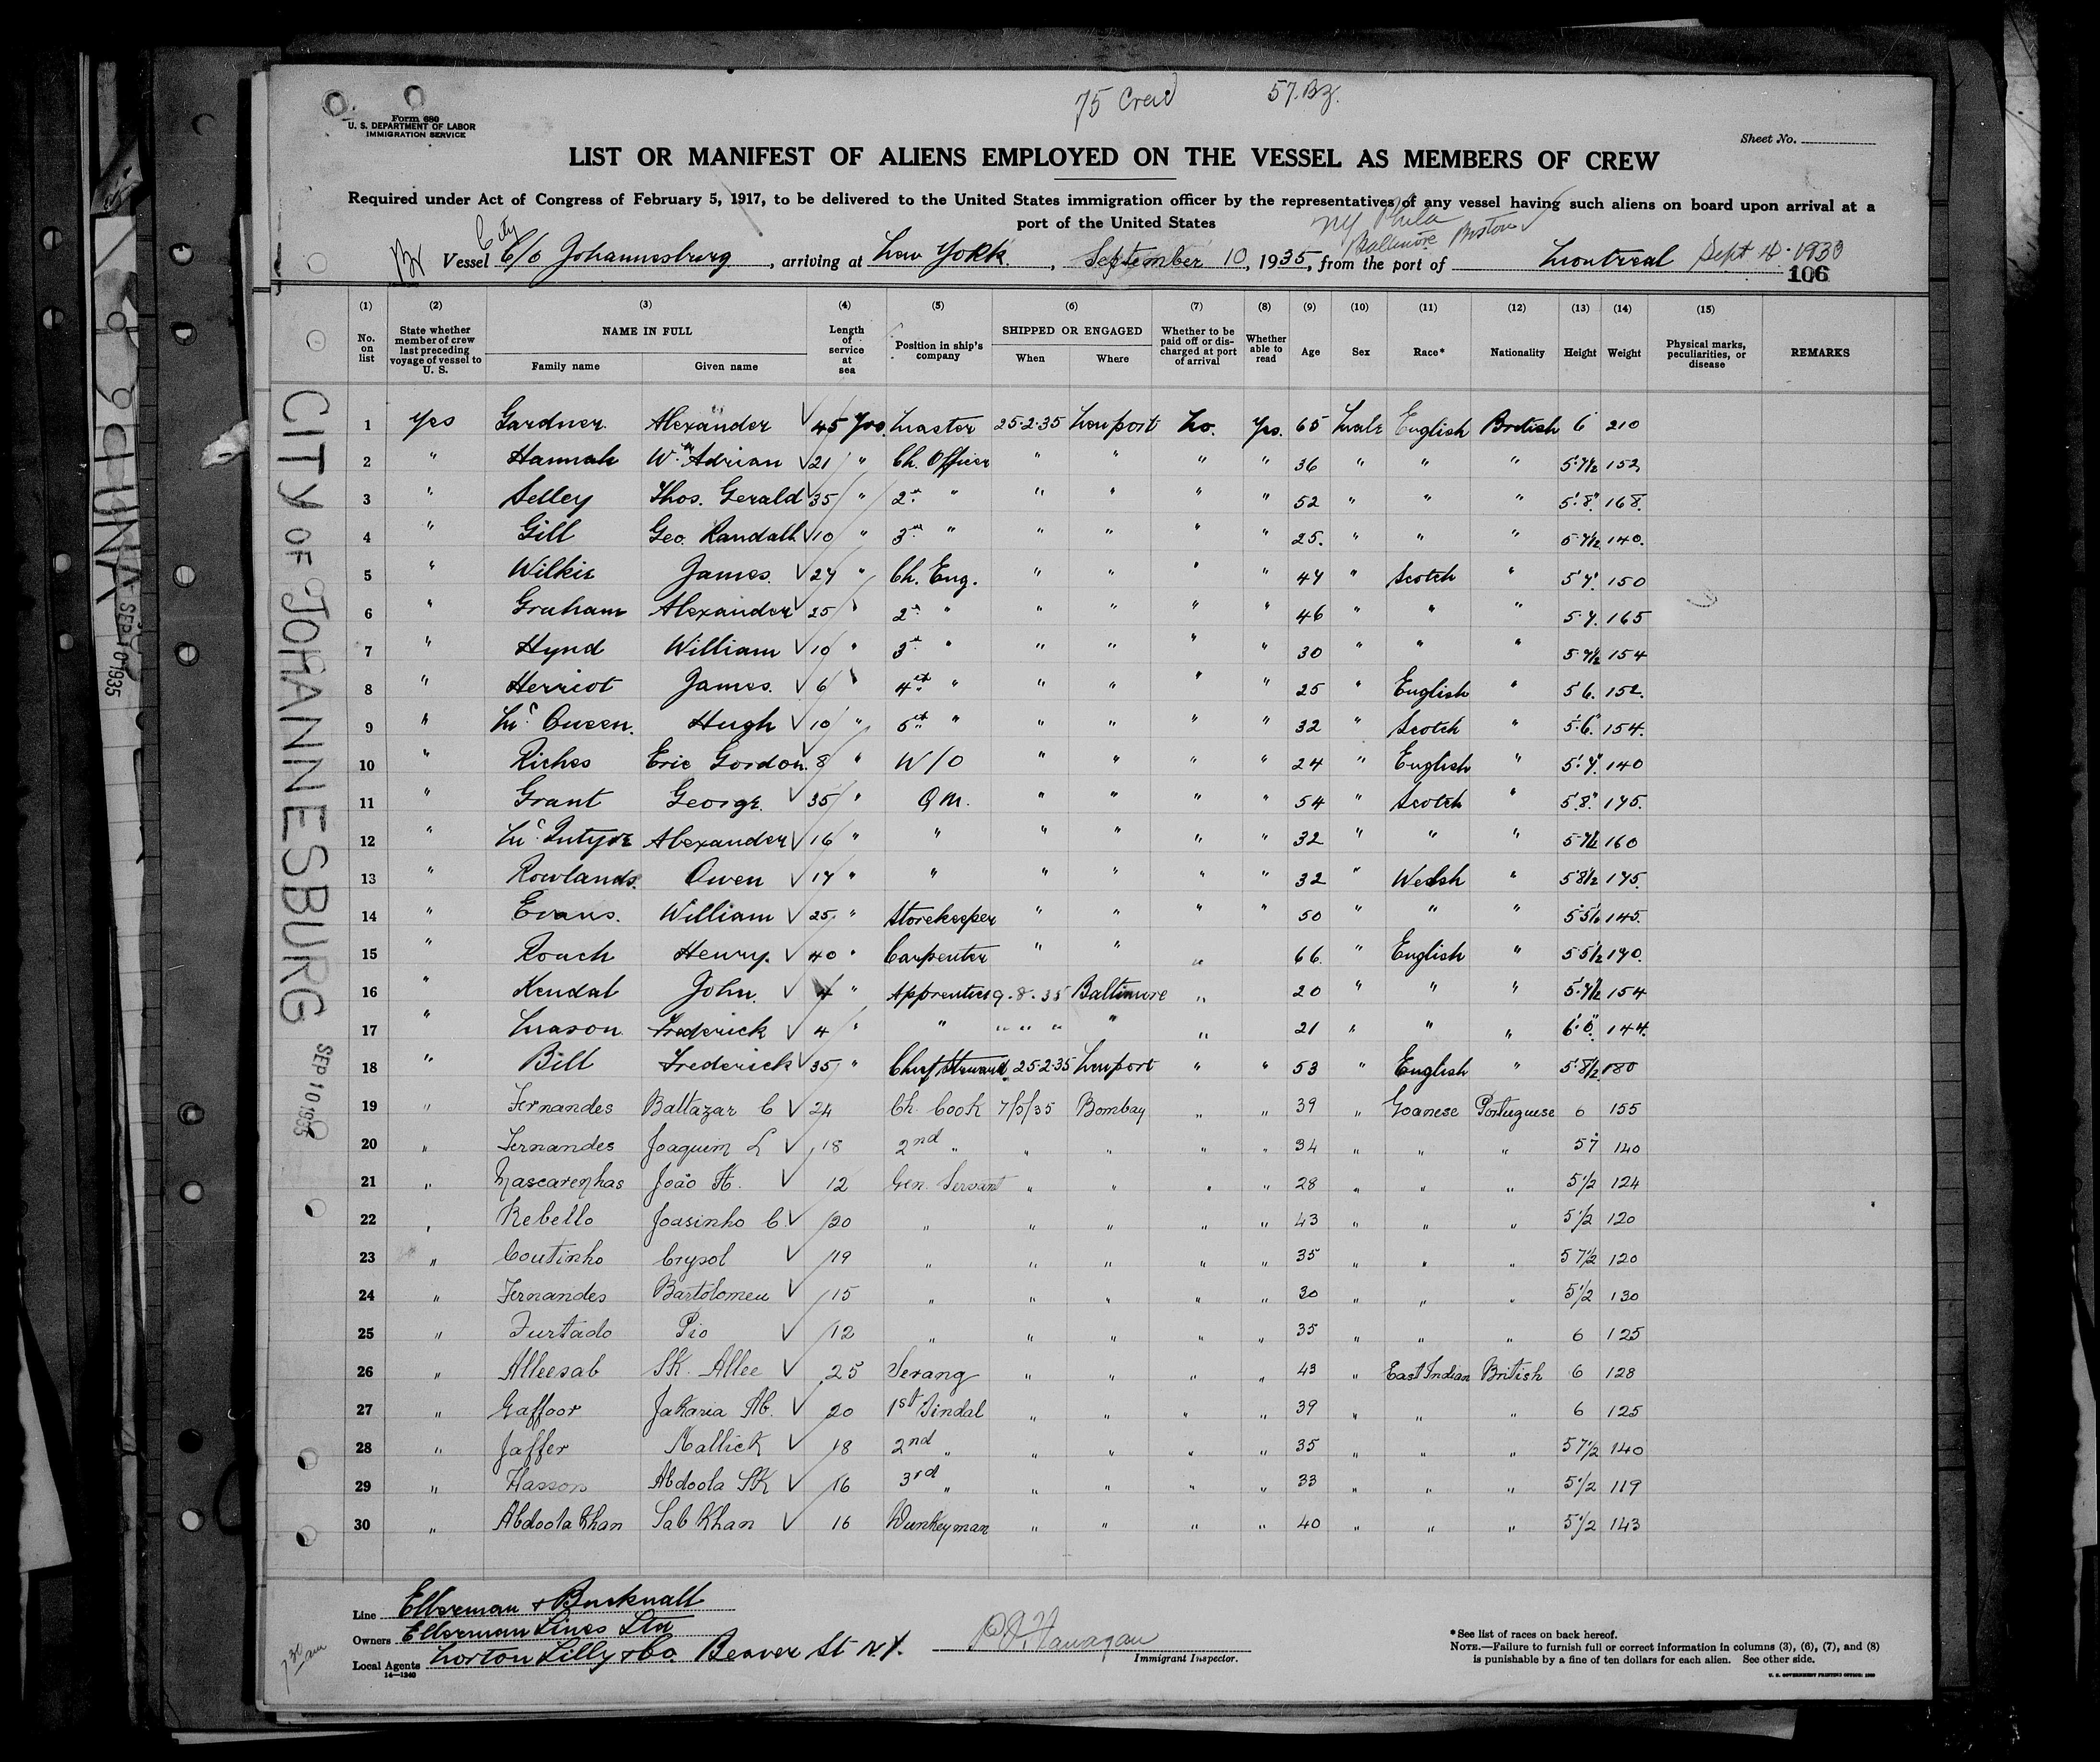 75 Crew 57. Bz.
Form 680
U. S. DEPARTMENT OF LABOR
IMMIGRATION SERVICE
Sheet No.
LIST OR MANIFEST OF ALIENS EMPLOYED ON THE VESSEL AS MEMBERS OF CREW
Required under Act of Congress of February 5, 1917, to be delivered to the United States immigration officer by the representatives of any vessel having such aliens on board upon arrival at a
port of the United States
NY Phila
Baltimore Boston
City
Br Vessel C/o Johannesburg, arriving at New York., September 10, 1935, from the port of Montreal Sept
106
(1) (2) (3) (4) (5) (6) (7) (8) (9) (10) (11) (12) (13) (14) (15)
No. on list | State whether member of crew last preceding voyage of vessel to U. S. | NAME IN FULL | Family name | Given name | Length of service at sea | Position in ship's company | SHIPPED OR ENGAGED | When | Where | Whether to be paid off or discharged at port of arrival | Whether able to read | Age | Sex | Race* | Nationality | Height | Weight | Physical marks, peculiarities, or disease | REMARKS
1 Yes Gardner. Alexander 45 Yrs. Master 25.2.35 Newport No. Yes. 65 Male English British 6 210
2 " Hannah Wm Adrian 21 " Ch. Officer " " " " 36 " " " 5.7½ 152
3 " Selley Thos. Gerald 35 " 2nd " " " " " 52 " " " 5.8" 168.
4 " Gill Geo. Randall 10 " 3rd " " " " " 25. " " " 5.7½ 140.
5 " Wilkie James. 27 " Ch. Eng. " " " " 47 " Scotch " 5'7" 150
6 " Graham Alexander 25 " 2nd " " " " " 46 " " " 5.7. 165
7 " Hynd William 10 " 3rd " " " " " 30 " " " 5.7½ 154
8 " Herriot James. 6 " 4th " " " " " 25 " English " 5 6. 152.
9 " Mc Queen. Hugh 10 " 5th " " " " " 32 " Scotch " 5.6" 154.
10 " Riches Eric Gordon. 8 " W/O " " " " 24 " English " 5'.7" 140
11 " Grant George. 35 " Q M. " " " " 54 " Scotch " 5.8." 175.
12 " Mc Intyre Alexander 16 " " " " " " 32 " " " 5 7½ 160
13 " Rowlands. Owen 17 " " " " " " 32 " Welsh " 5 8½ 175.
14 " Evans. William 25 " Storekeeper " " " " 50 " " " 145.
15 " Roach Henry. 40 " Carpenter " " " 66. " English " 5 5½ 170.
16 " Kendal John. 4 " Apprentice 9.8.35 Baltimore " 20 " " " 5.7½ 154
17 " Mason Frederick 4 " " " " " " " 21 " " " 6'.0" 144.
18 " Bill Frederick 35 " Chief Steward. 25.2.35 Newport " " 53 " English " 5.8½ 180
19 " Fernandes Baltazar C 24 Ch. Cook 7/5/35 Bombay " " 39 " Goanese Portuguese 6 155
20 " Fernandes Joaquim L 18 2nd " " " " " 34 " " " 5 7 140
21 " Mascarenhas João A. 12 Gen. Servant " " " " 28 " " " 5½ 124
22 " Rebello Joasinho C. 20 " " " " " 43 " " " 5½ 120
23 " Coutinho Crysol 19 " " " " " 35 " " " 5 7½ 120
24 " Fernandes Bartolomeu 15 " " " " " 30 " " " 5½ 130
25 " Furtado Pio 12 " " " " " 35 " " " 6 125
26 " Alleesab SK. Allee 25 Serang " " " " 43 " East Indian British 6 128
27 " Gaffoor Jakaria Ab. 20 1st Tindal " " " " 39 " " " 6 125
28 " Jaffer Mallick 18 2nd " " " " " 35 " " " 5 7½ 140
29 " Hasson Abdoola SK 16 3rd " " " " " 33 " " " 5½ 119
30 " Abdoola Khan Sab Khan 16 Wunkeyman " " " " 40 " " " 5½ 143
CITY OF JOHANNESBURG SEP 10 1935
SEP 10 1935
Line Ellerman & Bucknall
Owners Ellerman Lines Ltd
Local Agents Norton Lilly & Co. Beaver St N.Y.
14—1240
Immigrant Inspector.
7 30 am
*See list of races on back hereof.
NOTE.—Failure to furnish full or correct information in columns (3), (6), (7), and (8)
is punishable by a fine of ten dollars for each alien. See other side.